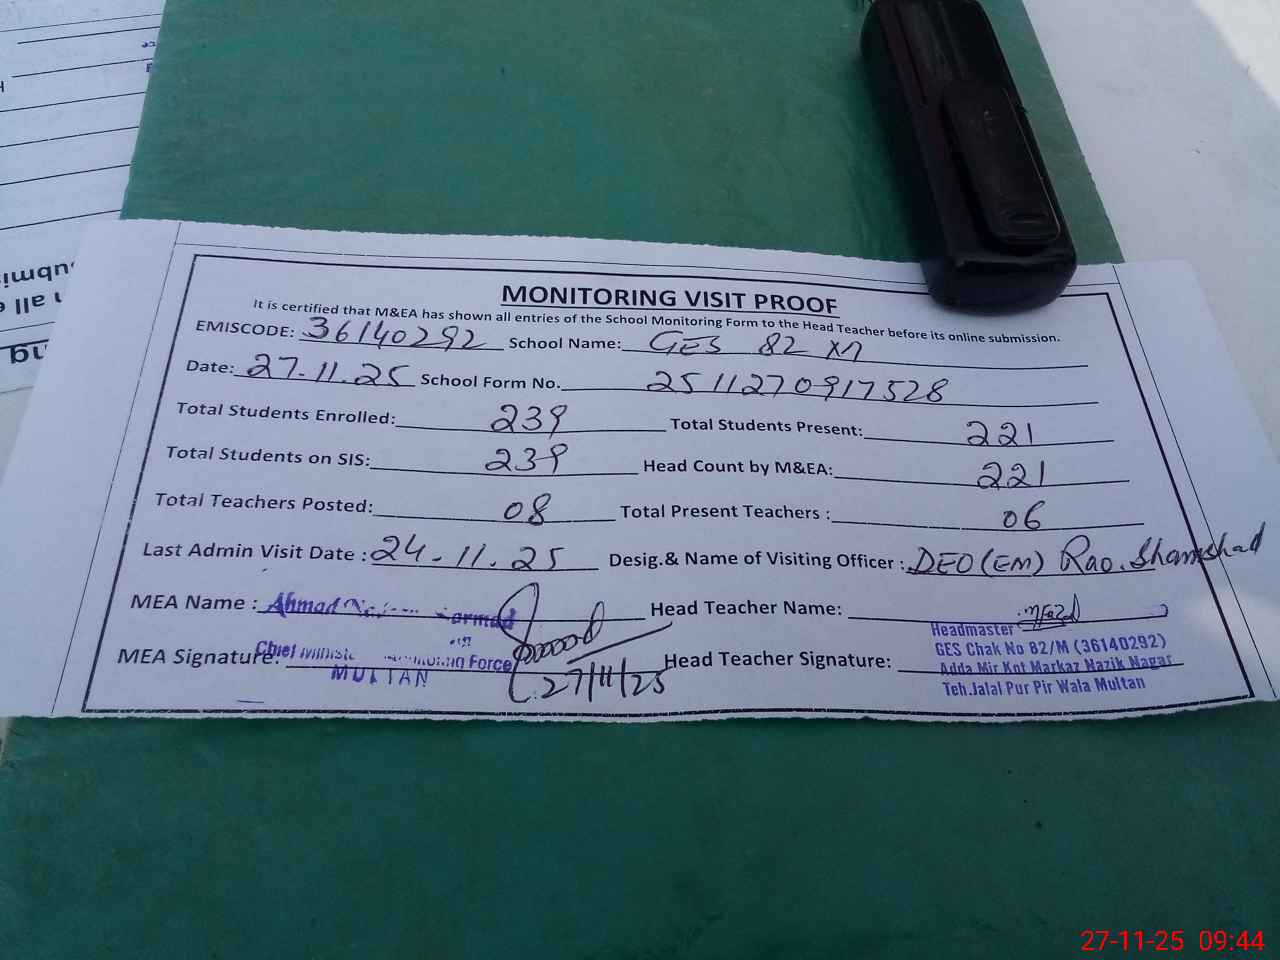 MONITORING VISIT PROOF
It is certified that M&EA has shown all entries of the School Monitoring Form to the Head Teacher before its online submission.
EMISCODE: 36140292 School Name: GES 82 M
Date: 27.11.25 School Form No. 2511270917528
Total Students Enrolled: 239 Total Students Present: 221
Total Students on SIS: 239 Head Count by M&EA: 221
Total Teachers Posted: 08 Total Present Teachers : 06
Last Admin Visit Date : 24.11.25 Desig.& Name of Visiting Officer : DEO (EM) Rao. Shamshad
MEA Name : Ahmad Head Teacher Name:
Headmaster
GES Chak No 82/M (36140292)
Adda Mir Kot Markaz Nazik Nagar
Teh.Jalal Pur Pir Wala Multan
MEA Signature: Chief Force
MULTAN
27/11/25
Head Teacher Signature:
27-11-25 09:44